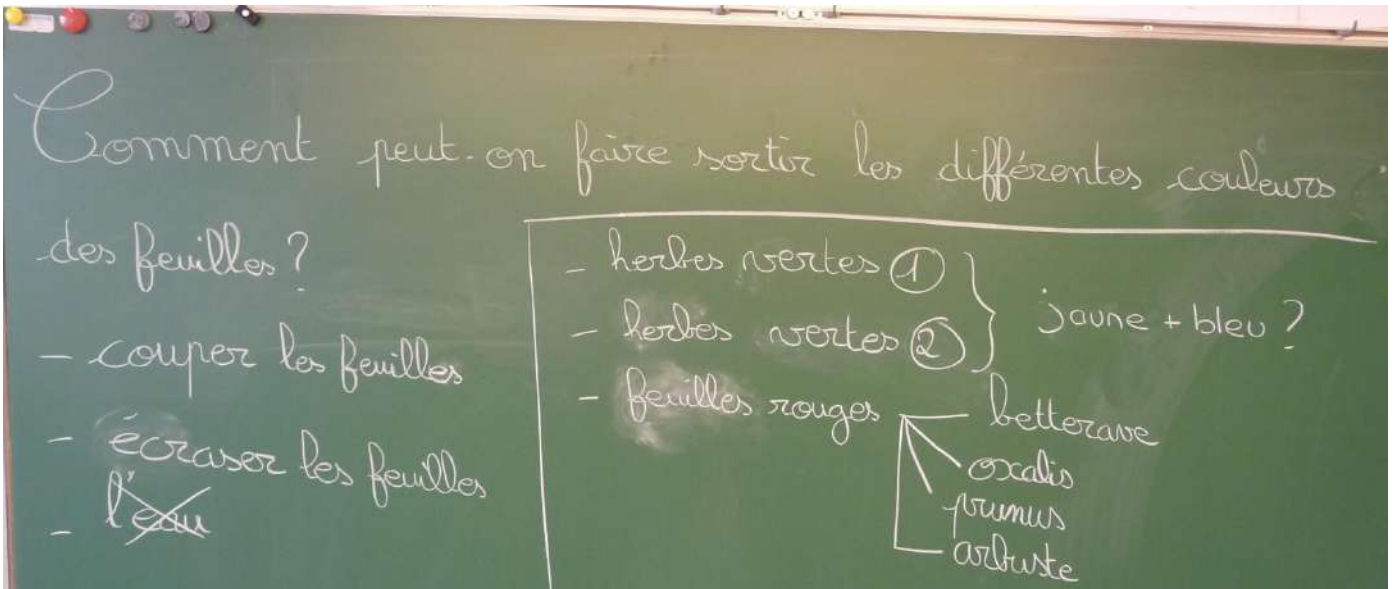 Comment peut-on faire sortir les différentes couleurs
des feuilles ?
- couper les feuilles
- écraser les feuilles
- l'eau
- herbes vertes ①
- herbes vertes ②
jaune + bleu ?
- feuilles rouges
betterave
oxalis
prunus
arbuste